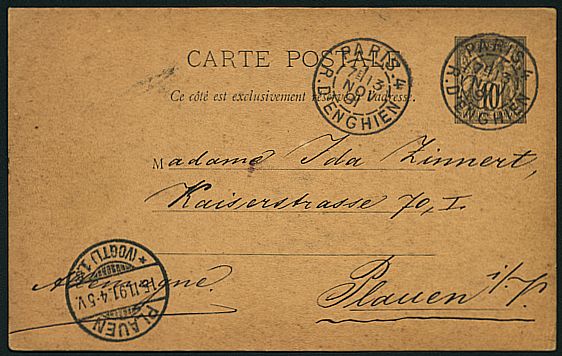 CARTE POSTALE
PARIS 4
7E 13
NO
91
R. D'ENGHIEN
PARIS 4
7E 13
R. D'ENGHIEN
10
Ce côté est exclusivement réservé à l'adresse.
Madame Ida Zinnert,
Kaiserstrasse 70, I.
Plauen i/V.
Allemagne.
* (VOGTL) 1 *
11.91.4-5V.
PLAUEN